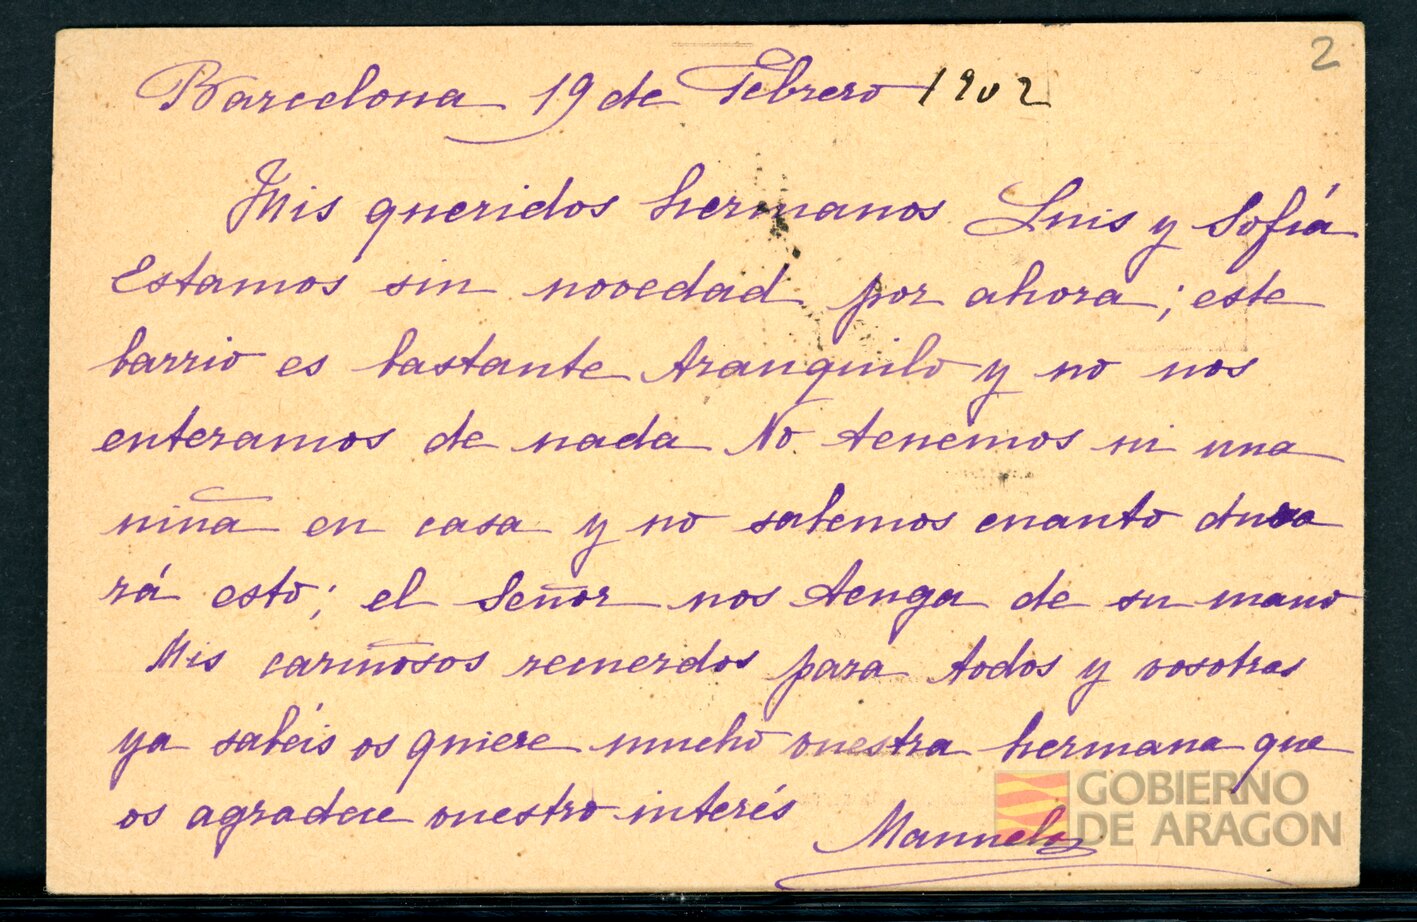 2
Barcelona 19 de Febrero 1902
Mis queridos hermanos Luis y Sofía
Estamos sin novedad por ahora; este
barrio es bastante tranquilo y no nos
enteramos de nada No tenemos ni una
niña en casa y no sabemos cuanto dura
rá esto; el Señor nos tenga de su mano
Mis cariñosos recuerdos para todos y vosotros
ya sabéis os quiere mucho vuestra hermana que
os agradece vuestro interés
Manuela
GOBIERNO
DE ARAGON